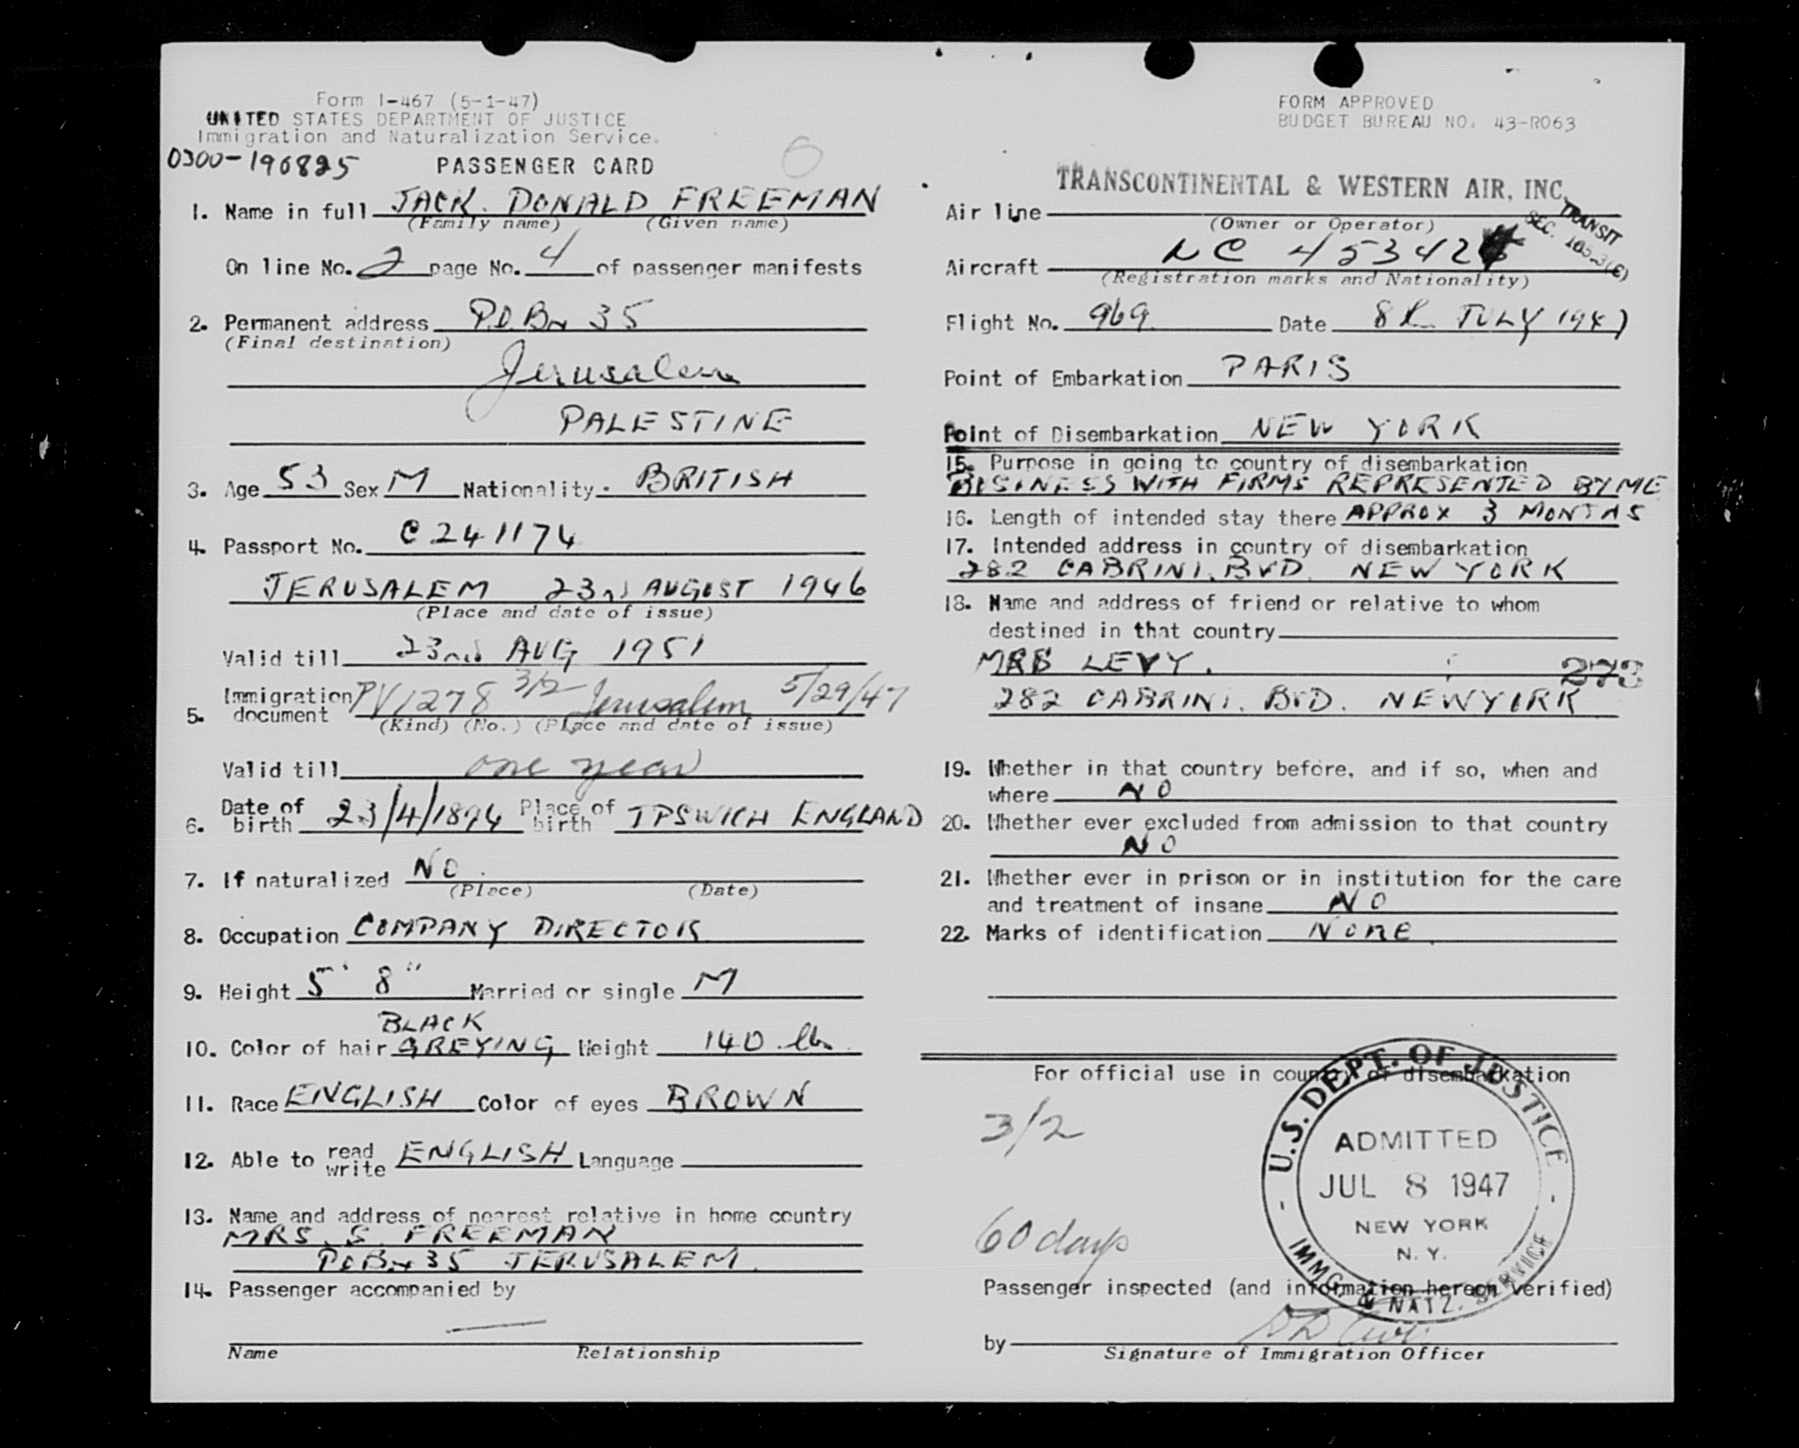 Form I-467 (5-1-47)
UNITED STATES DEPARTMENT OF JUSTICE
Immigration and Naturalization Service.
0300-196825
PASSENGER CARD
1. Name in full JACK. DONALD FREEMAN
(Family name) (Given name)
On line No. 2 page No. 4 of passenger manifests
2. Permanent address P.O.Bx 35
(Final destination)
Jerusalem
PALESTINE
3. Age 53 Sex M Nationality. BRITISH
4. Passport No. C241174
JERUSALEM 23rd AUGUST 1946
(Place and date of issue)
Valid till 23rd AUG 1951
5. Immigration document PV1278 3/2 Jerusalem 5/29/47
(Kind) (No.) (Place and date of issue)
Valid till one year
6. Date of birth 23/4/1894 Place of birth IPSWICH ENGLAND
7. If naturalized NO.
(Place) (Date)
8. Occupation COMPANY DIRECTOR
9. Height 5' 8" Married or single M
BLACK
10. Color of hair GREYING Weight 140 lbs.
11. Race ENGLISH Color of eyes BROWN
12. Able to read write ENGLISH Language
13. Name and address of nearest relative in home country
MRS. S. FREEMAN
POBx 35 JERUSALEM.
14. Passenger accompanied by
Name Relationship
FORM APPROVED
BUDGET BUREAU NO. 43-R063
TRANSCONTINENTAL & WESTERN AIR, INC.
Air line
(Owner or Operator)
TRANSIT
SEC. 165.3(C)
Aircraft NC 45342
(Registration marks and Nationality)
Flight No. 969 Date 8th JULY 1947
Point of Embarkation PARIS
Point of Disembarkation NEW YORK
15. Purpose in going to country of disembarkation
BUSINESS WITH FIRMS REPRESENTED BY ME
16. Length of intended stay there APPROX 3 MONTHS
17. Intended address in country of disembarkation
282 CABRINI. BVD. NEW YORK
18. Name and address of friend or relative to whom
destined in that country
MRS LEVY. 273
282 CABRINI. BVD. NEWYORK
19. Whether in that country before, and if so, when and
where NO
20. Whether ever excluded from admission to that country
NO
21. Whether ever in prison or in institution for the care
and treatment of insane NO
22. Marks of identification NONE
For official use in country of disembarkation
3/2
60 days
U.S. DEPT. OF JUSTICE
ADMITTED
JUL 8 1947
NEW YORK
N. Y.
IMMG. & NATZ. SERVICE
Passenger inspected (and information hereon verified)
by
Signature of Immigration Officer